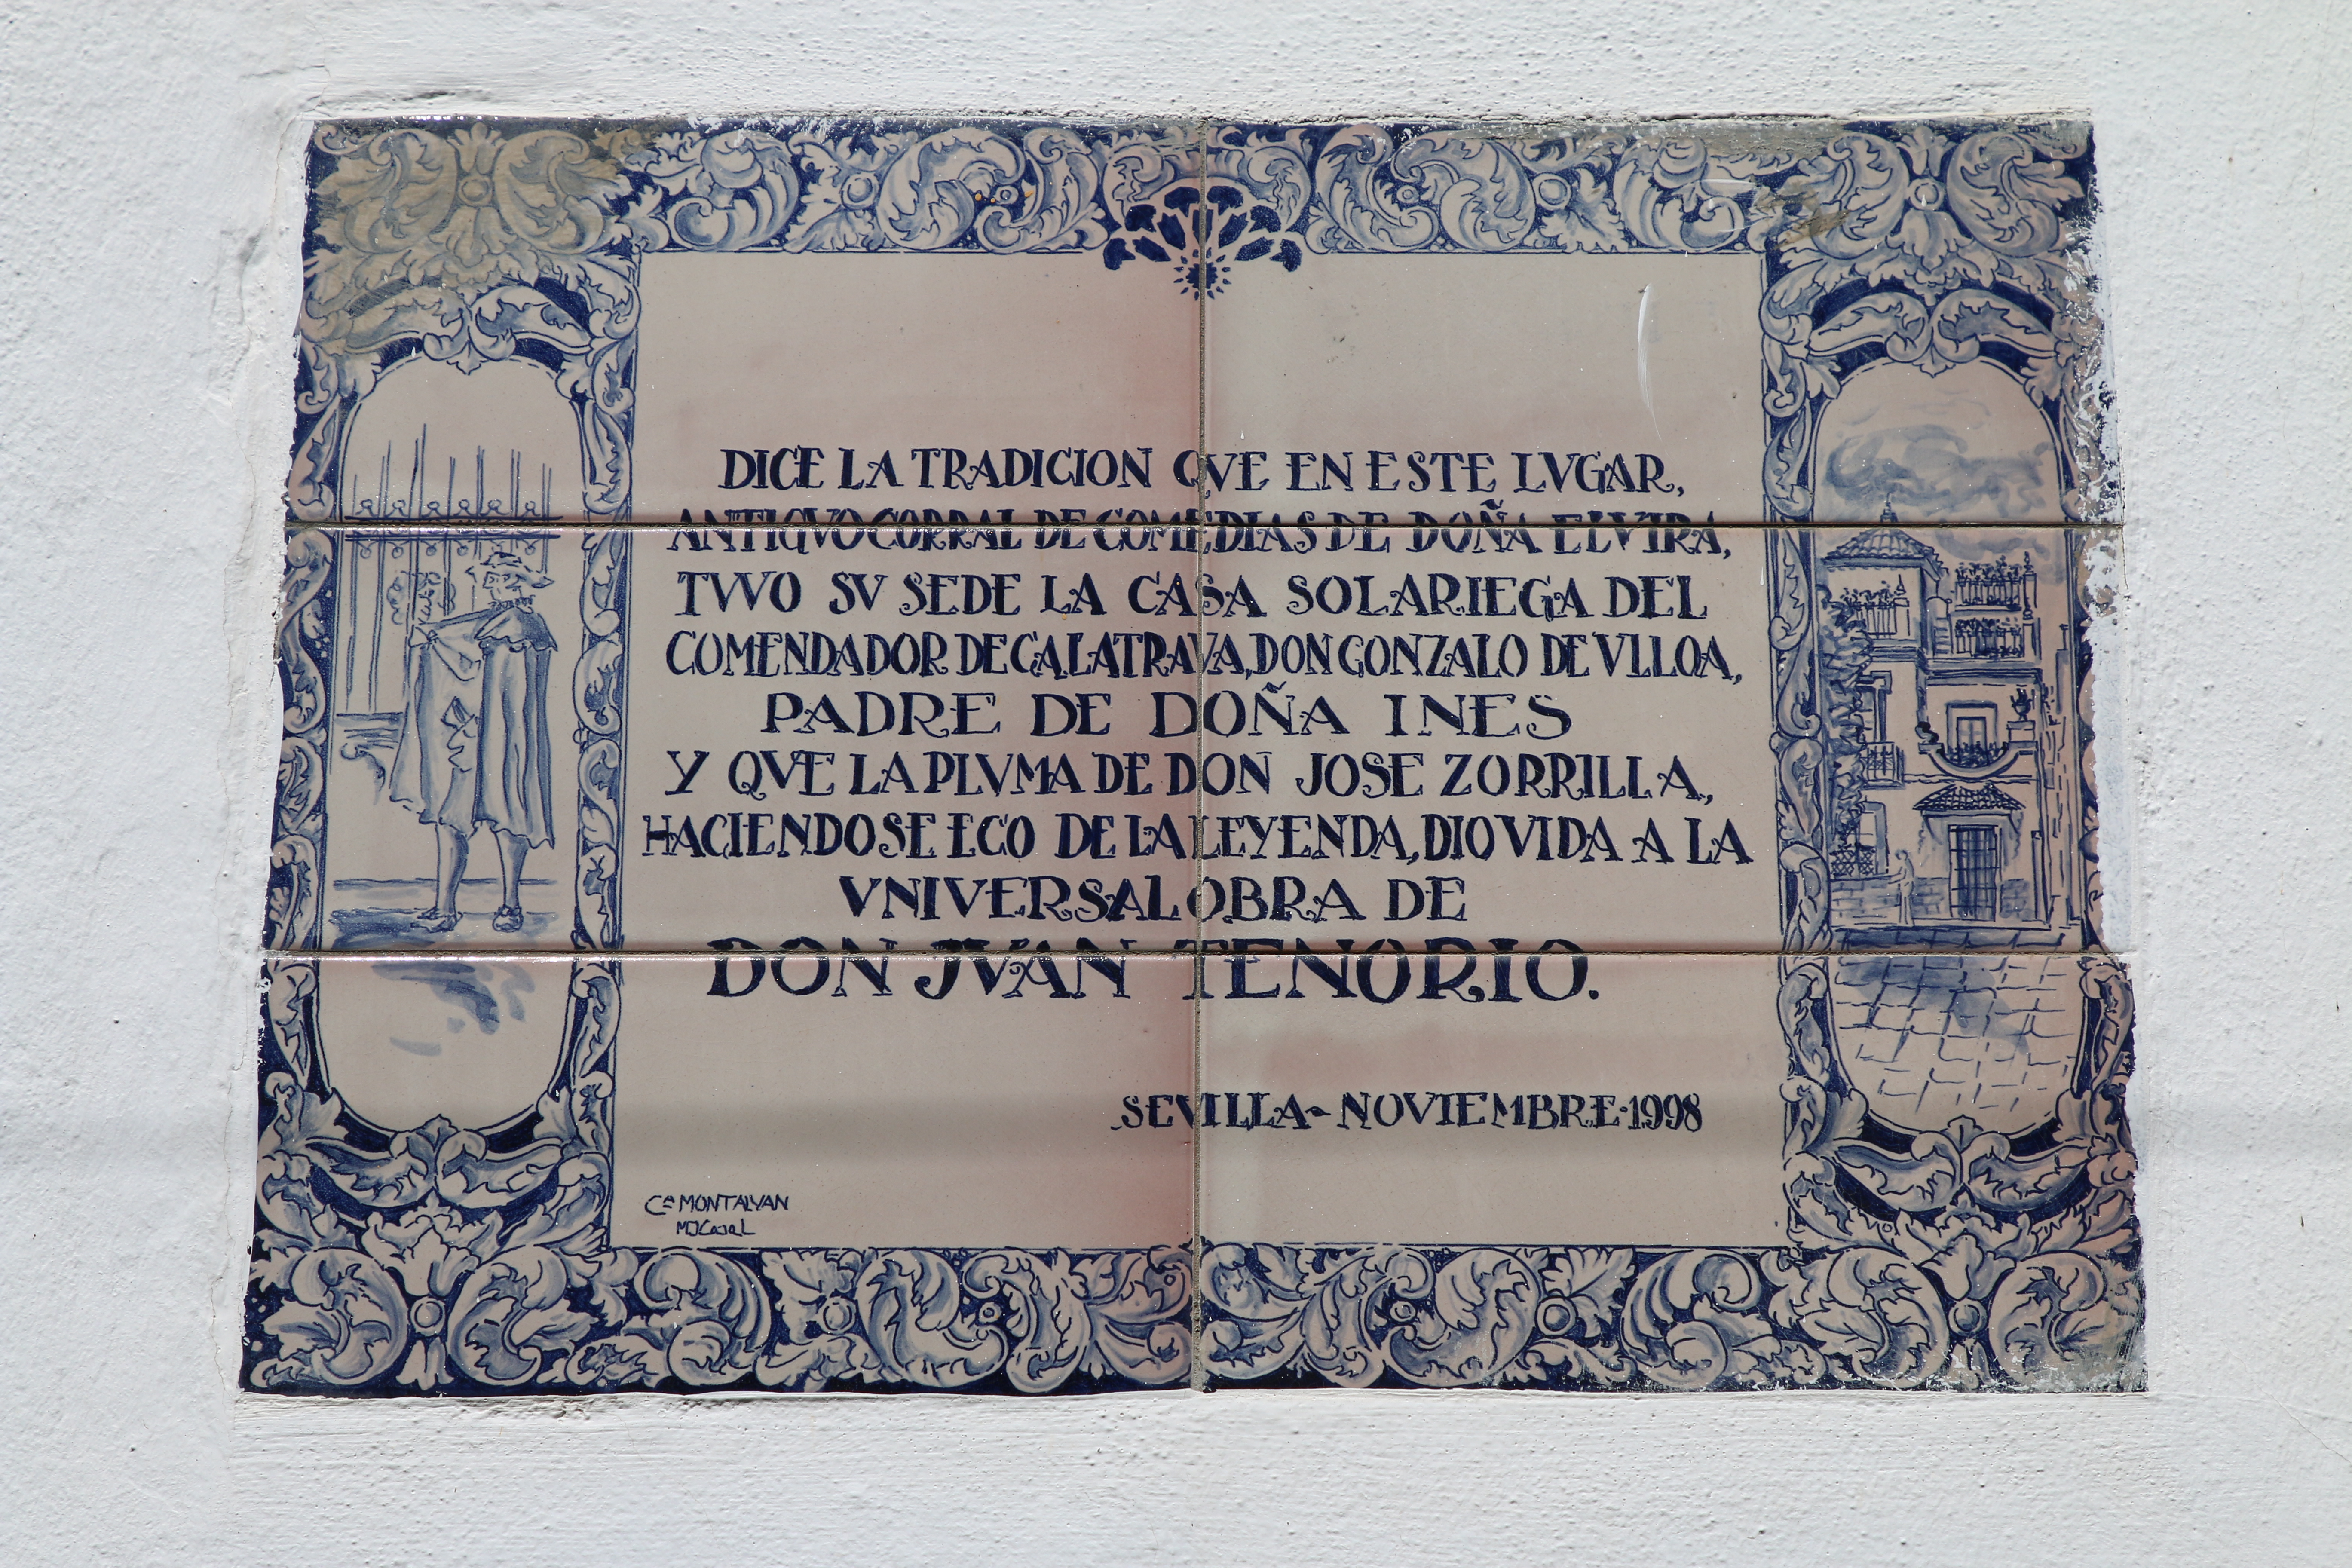 DICE LA TRADICION QVE EN ESTE LVGAR,
ANTIGVO CORRAL DE COMEDIAS DE DOÑA ELVIRA,
TVVO SV SEDE LA CASA SOLARIEGA DEL
COMENDADOR DE CALATRAVA, DON GONZALO DE VLLOA,
PADRE DE DOÑA INES
Y QVE LA PLVMA DE DON JOSE ZORRILLA,
HACIENDOSE ECO DE LA LEYENDA, DIO VIDA A LA
VNIVERSAL OBRA DE
DON JVAN TENORIO.
SEVILLA-NOVIEMBRE-1998
Cª MONTALVAN
MJCasal